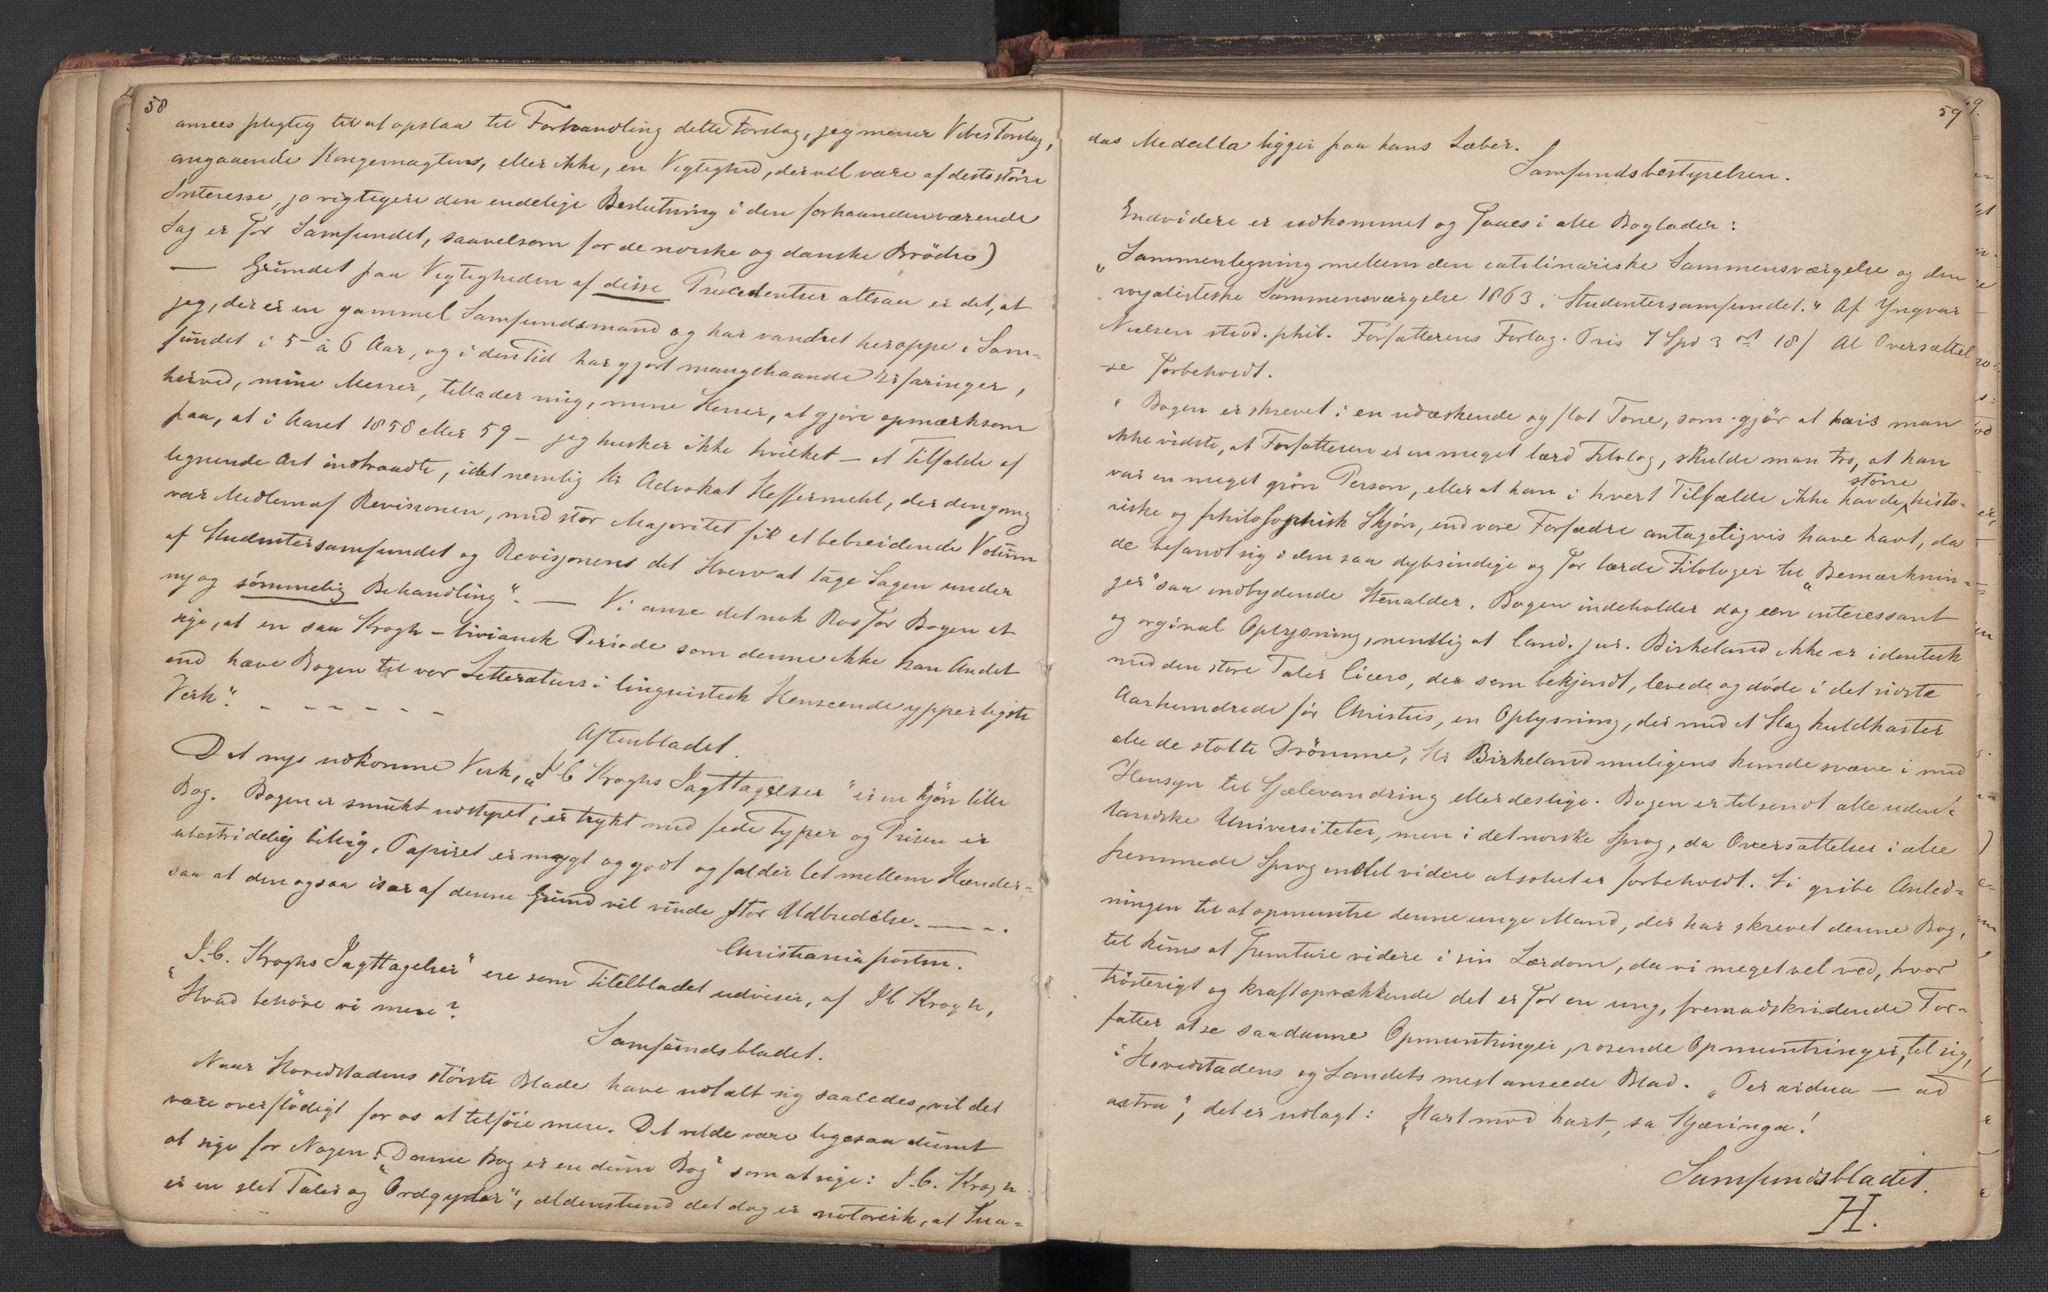 58
ansees pligtig til at opstaa til Forhandling dette Forslag, jeg mener Vibes Forslag,
angaaende Kongemagtens, eller ikke, en Vigtighed, der vil være af desto større
Interesse, jo vigtigere den endelige Beslutning i den forhaandenværende
Sag er for Samfundet, saavelsom for de norske og danske Brødre)
— Grundet paa Vigtigheden af disse Precedentser altsaa er det, at
jeg, der er en gammel Samfundsmand og har vandret heroppe i Sam-
fundet i 5 à 6 Aar, og i den Tid har gjort mangehaande Erfaringer,
herved, mine Herrer, tillader mig, mine Herrer, at gjøre opmærksom
paa, at i Aaret 1858 eller 59 – jeg husker ikke hvilket – et Tilfælde af
lignende Art indtraadte, idet nemlig Hr Advokat Heffermehl, der dengang
var Medlem af Revisionen, med stor Majoritet fik et bebreidende Votum
af Studentersamfundet og Revisjonens det Hverv at tage Sagen under
ny og sømmelig Behandling". — Vi anse det nok Ros for Bogen at
sige, at en saa Krogh-liviansk Periode som denne ikke kan Andet
end hæve Bogen til vor Litteraturs i linguistisk Henseende ypperligste
Verk". – – – – – –
Aftenbladet.
Det nys udkomne Verk, „J C Kroghs Iagttagelser" er en kjøn lille
Bog. Bogen er smukt udstyret, er trykt med fede Typer og Prisen er
ubestridelig billig. Papiret er mygt og godt og falder let mellem Hænder-
saa at den ogsaa især af denne Grund vil vinde stor Udbredelse. – – – .
Christianiaposten.
„J. C. Kroghs Iagttagelser" ere som Titelbladet udviser, af J C Krogh,
Hvad behøve vi mere?
Samfundsbladet.
Naar Hovedstadens største Blade have udtalt sig saaledes, vil det
være overflødigt for os at tilføie mere. Det vilde være ligesaa dumt
at sige for Nogen: „Denne Bog er en dum Bog" som at sige: J. C. Krogh
er en slet Taler og "Ordgyder", aldenstund det dog er notorisk, at Sua-
59
das Medulla ligger paa hans Læber.
Samfundsbestyrelsen.
Endvidere er udkommet og faaes i alle Boglader:
„Sammenligning mellem den catilinariske Sammensværgelse og den
royalistiske Sammensværgelse 1863 i Studentersamfundet." Af Yngvar
Nielsen stud. phil. Forfatterens Forlag. Pris 7 Spd 3 18 Al Oversættel
se Forbeholdt.
Bogen er skrevet i en udæskende og flot Tone, som gjør at hvis man
ikke vidste, at Forfatteren er en meget lærd Filolog, skulde man tro, at han
var en meget grøn Person, eller at han i hvert Tilfælde ikke havde større histo-
riske og philosophisk Skjøn, end vore Forfædre antageligvis have havt, da
de befandt sig i den saa dybsindige og for lærde Filologer til „Bemærknin-
ger" saa indbydende Stenalder. Bogen indeholder dog een interessant
og orginal Oplysning, nemlig at Cand. jur. Birkeland ikke er identisk
med den store Taler Cicero, der som bekjendt, levede og døde i det sidste
Aarhundrede før Christus, en Oplysning, der med et Slag kuldkaster
alle de stolte Drømme, Hr Birkeland muligens kunde svæve i med
Hensyn til Sjælevandring eller deslige. Bogen er tilsendt alle uden-
landske Universiteter, men i det norske Sprog, da Oversættelser i alle
fremmede Sprog indtil videre absolut er forbeholdt. Vi gribe Anled-
ningen til at opmuntre denne unge Mand, der har skrevet denne Bog,
til kuns at fremture videre i sin Lærdom, da vi meget vel ved, hvor
trøsterigt og kraftopvækkende det er for en ung, fremadskridende For-
fatter at se saadanne Opmuntringer, rosende Opmuntringer, til sig,
i Hovedstadens og Landets mest anseede Blad. „Per ardua – ad
astra", det er udlagt: „Hart mod hart, sa Kjæringa!
Samfundsbladet.
H.